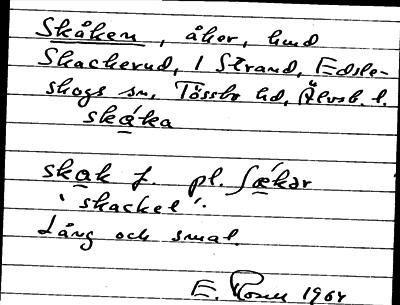 Skåken, åker, hmd
Skackerud, 1 Strand, Edsle-
skogs sn, Tössbo hd, Älvsb. l.
skáka
skak f. pl. ʃǽkər
'skackel'.
Lång och smal.
E. 1964